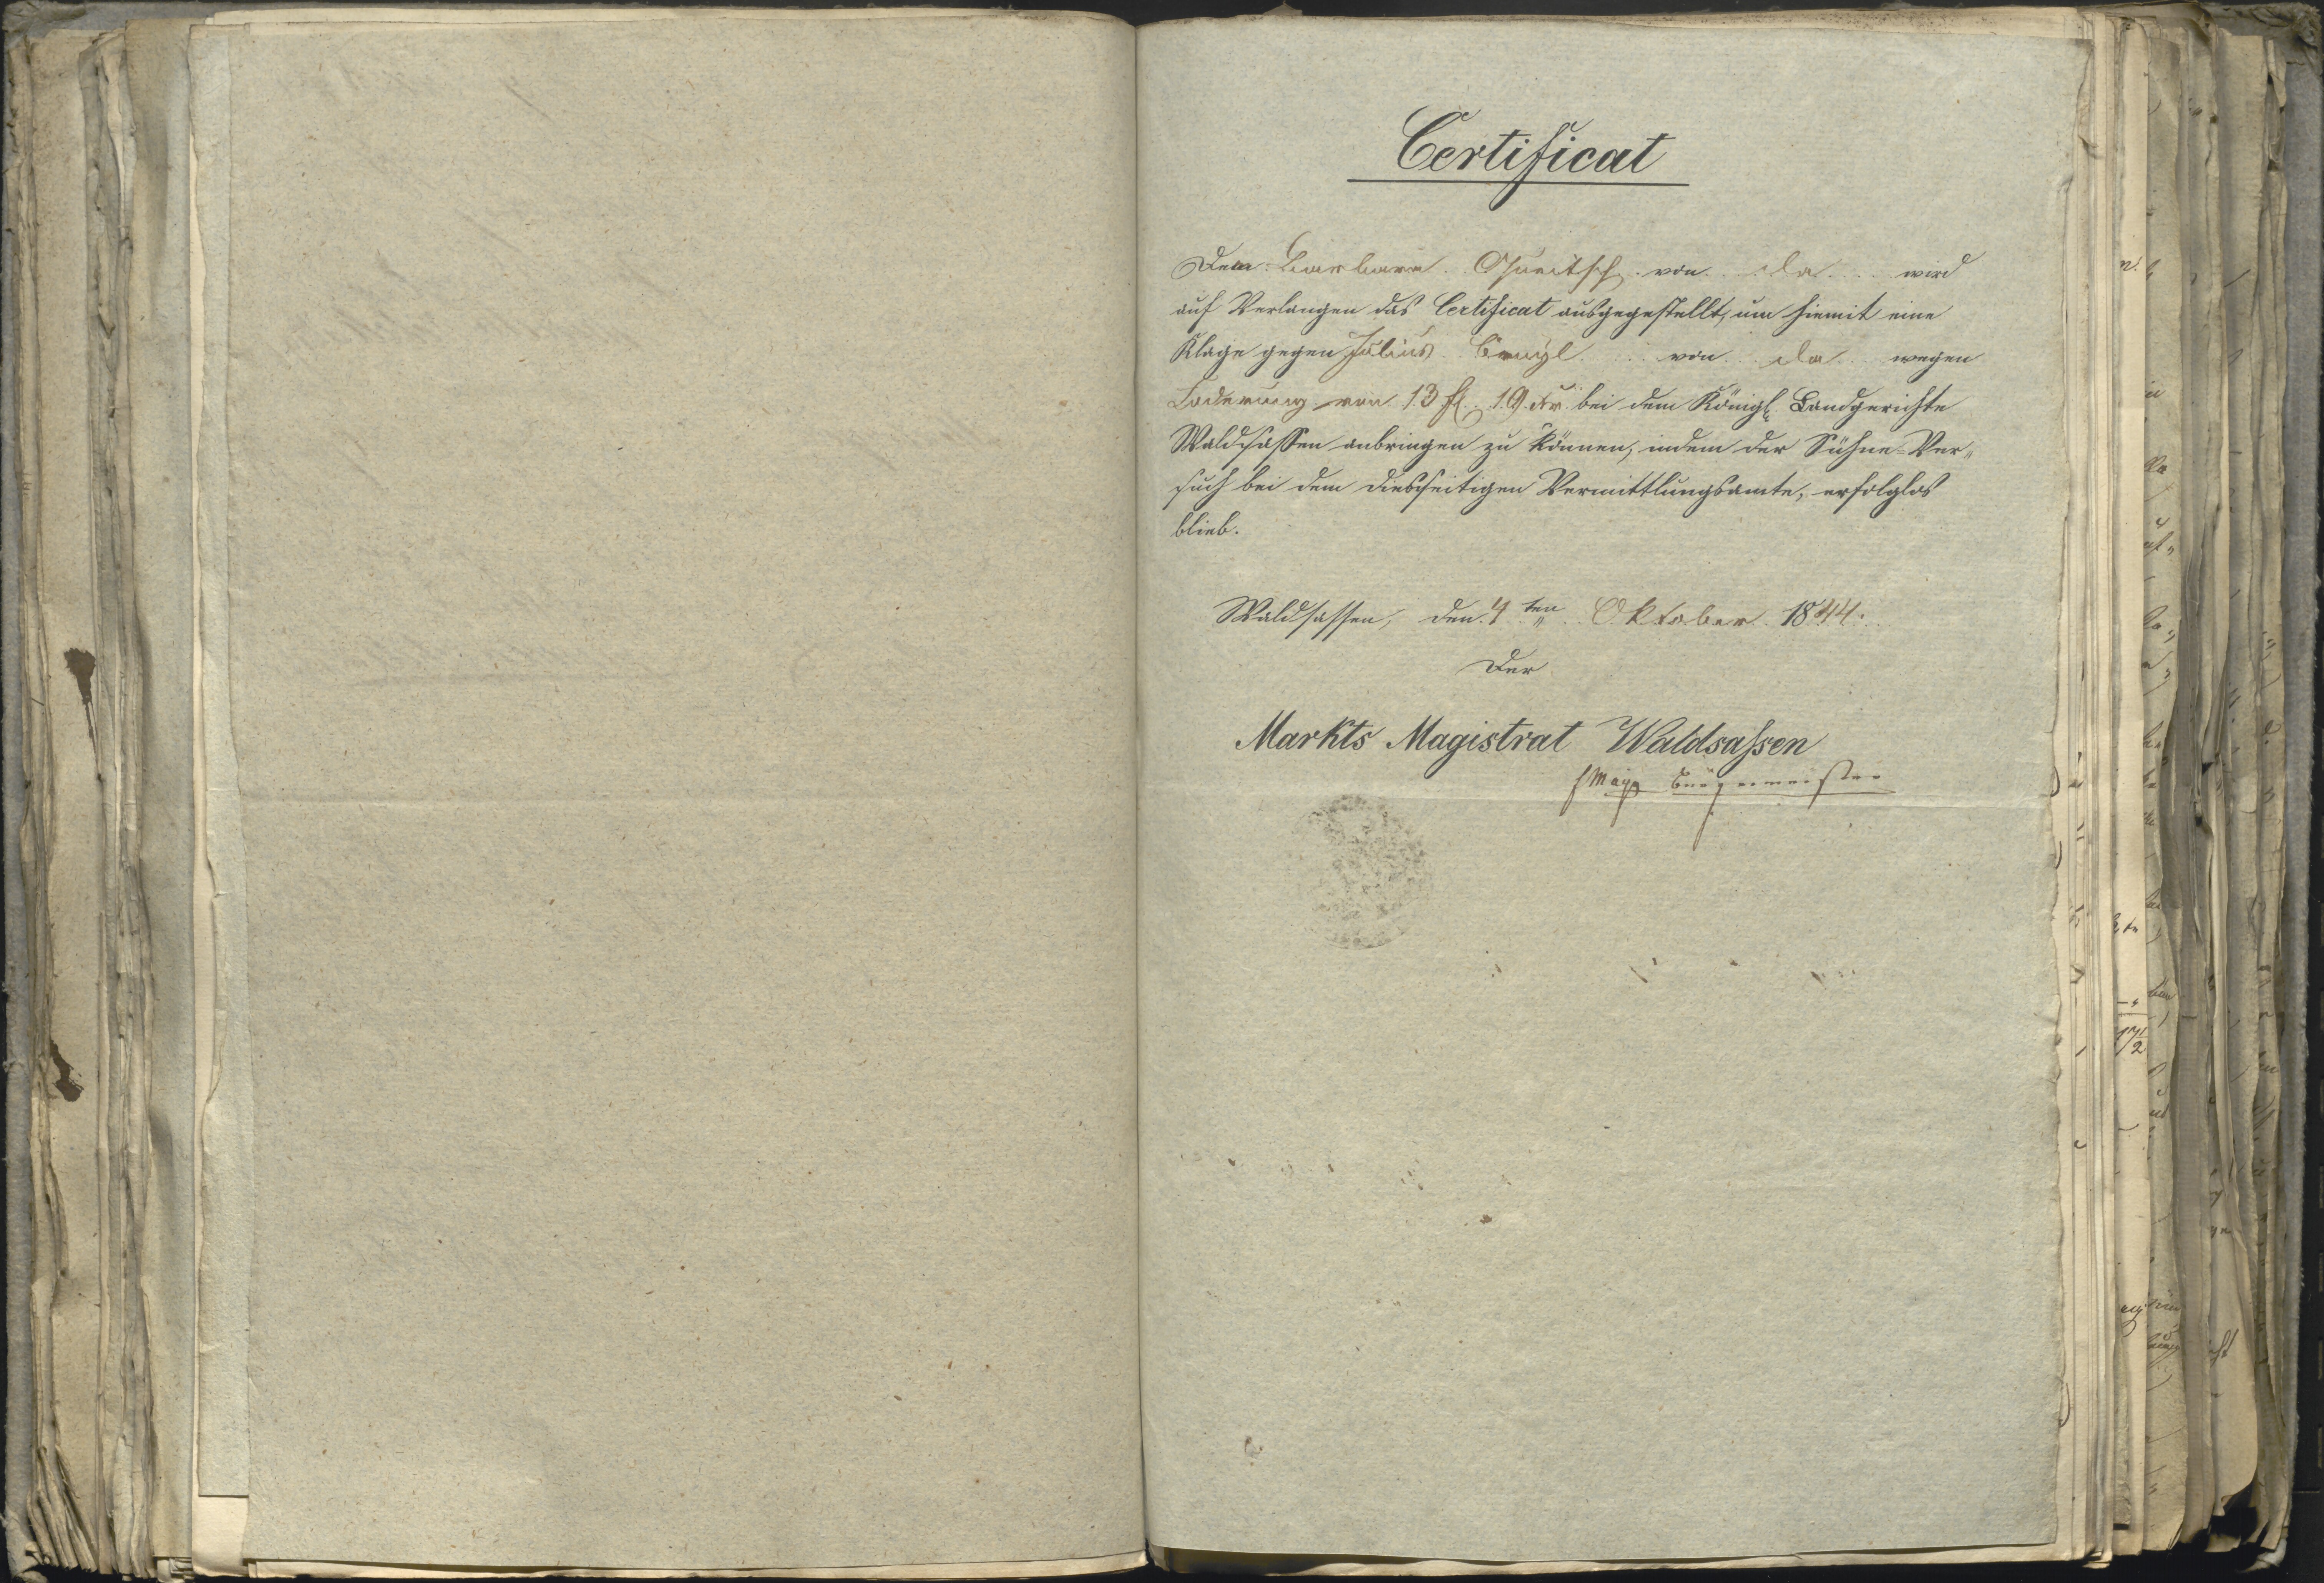 Certificat
Dem Barbara von da wird
auf Verlangen das Certificat ausgegestellt, um hiemit eine
Klage gegen Julius von da wegen
Foderung von 13 fl. 19 kr. bei dem Königl. Landgerichte
Waldsassen anbringen zu können, indem der Sühne-Ver„
such bei dem diesseitigen Vermittlungsamte, erfolglos
blieb.
Waldsassen, den 4ten Oktober 1844.
Der
Markts Magistrat Waldsassen
Bürgermeister